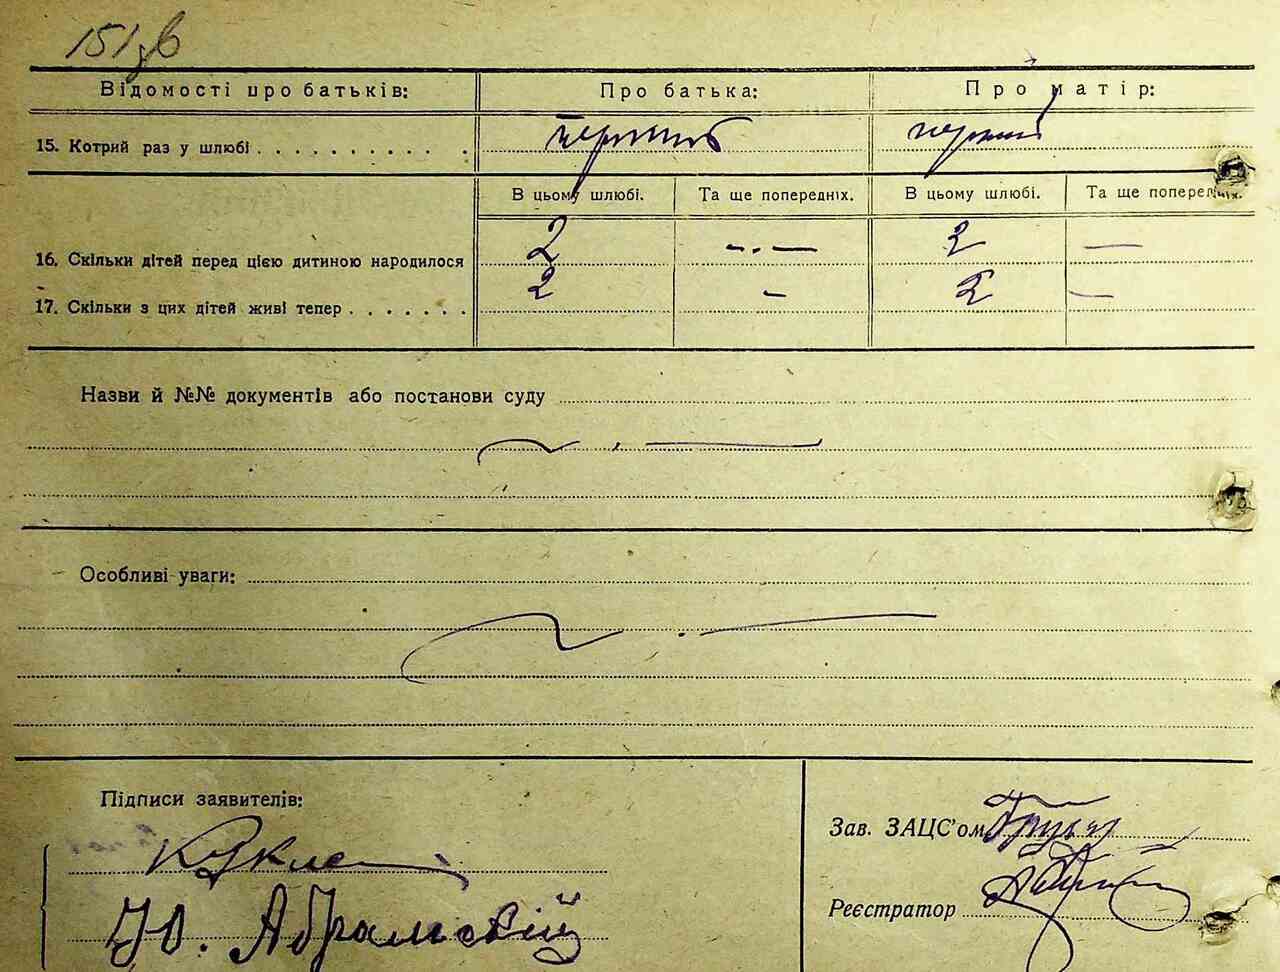 151 зв
Відомості про батьків: Про батька: Про матір:
15. Котрий раз у шлюбі . . . . . . . . . . . перший перший
В цьому шлюбі. Та ще попередніх. В цьому шлюбі. Та ще попередніх.
16. Скільки дітей перед цією дитиною народилося 2 — . — 2 —
17. Скільки з цих дітей живі тепер . . . . . . . 2 - 2 —
Назви й №№ документів або постанови суду
Особливі уваги:
Підписи заявителів:
Ю. Абрамський
Зав. ЗАЦС'ом
Реєстратор